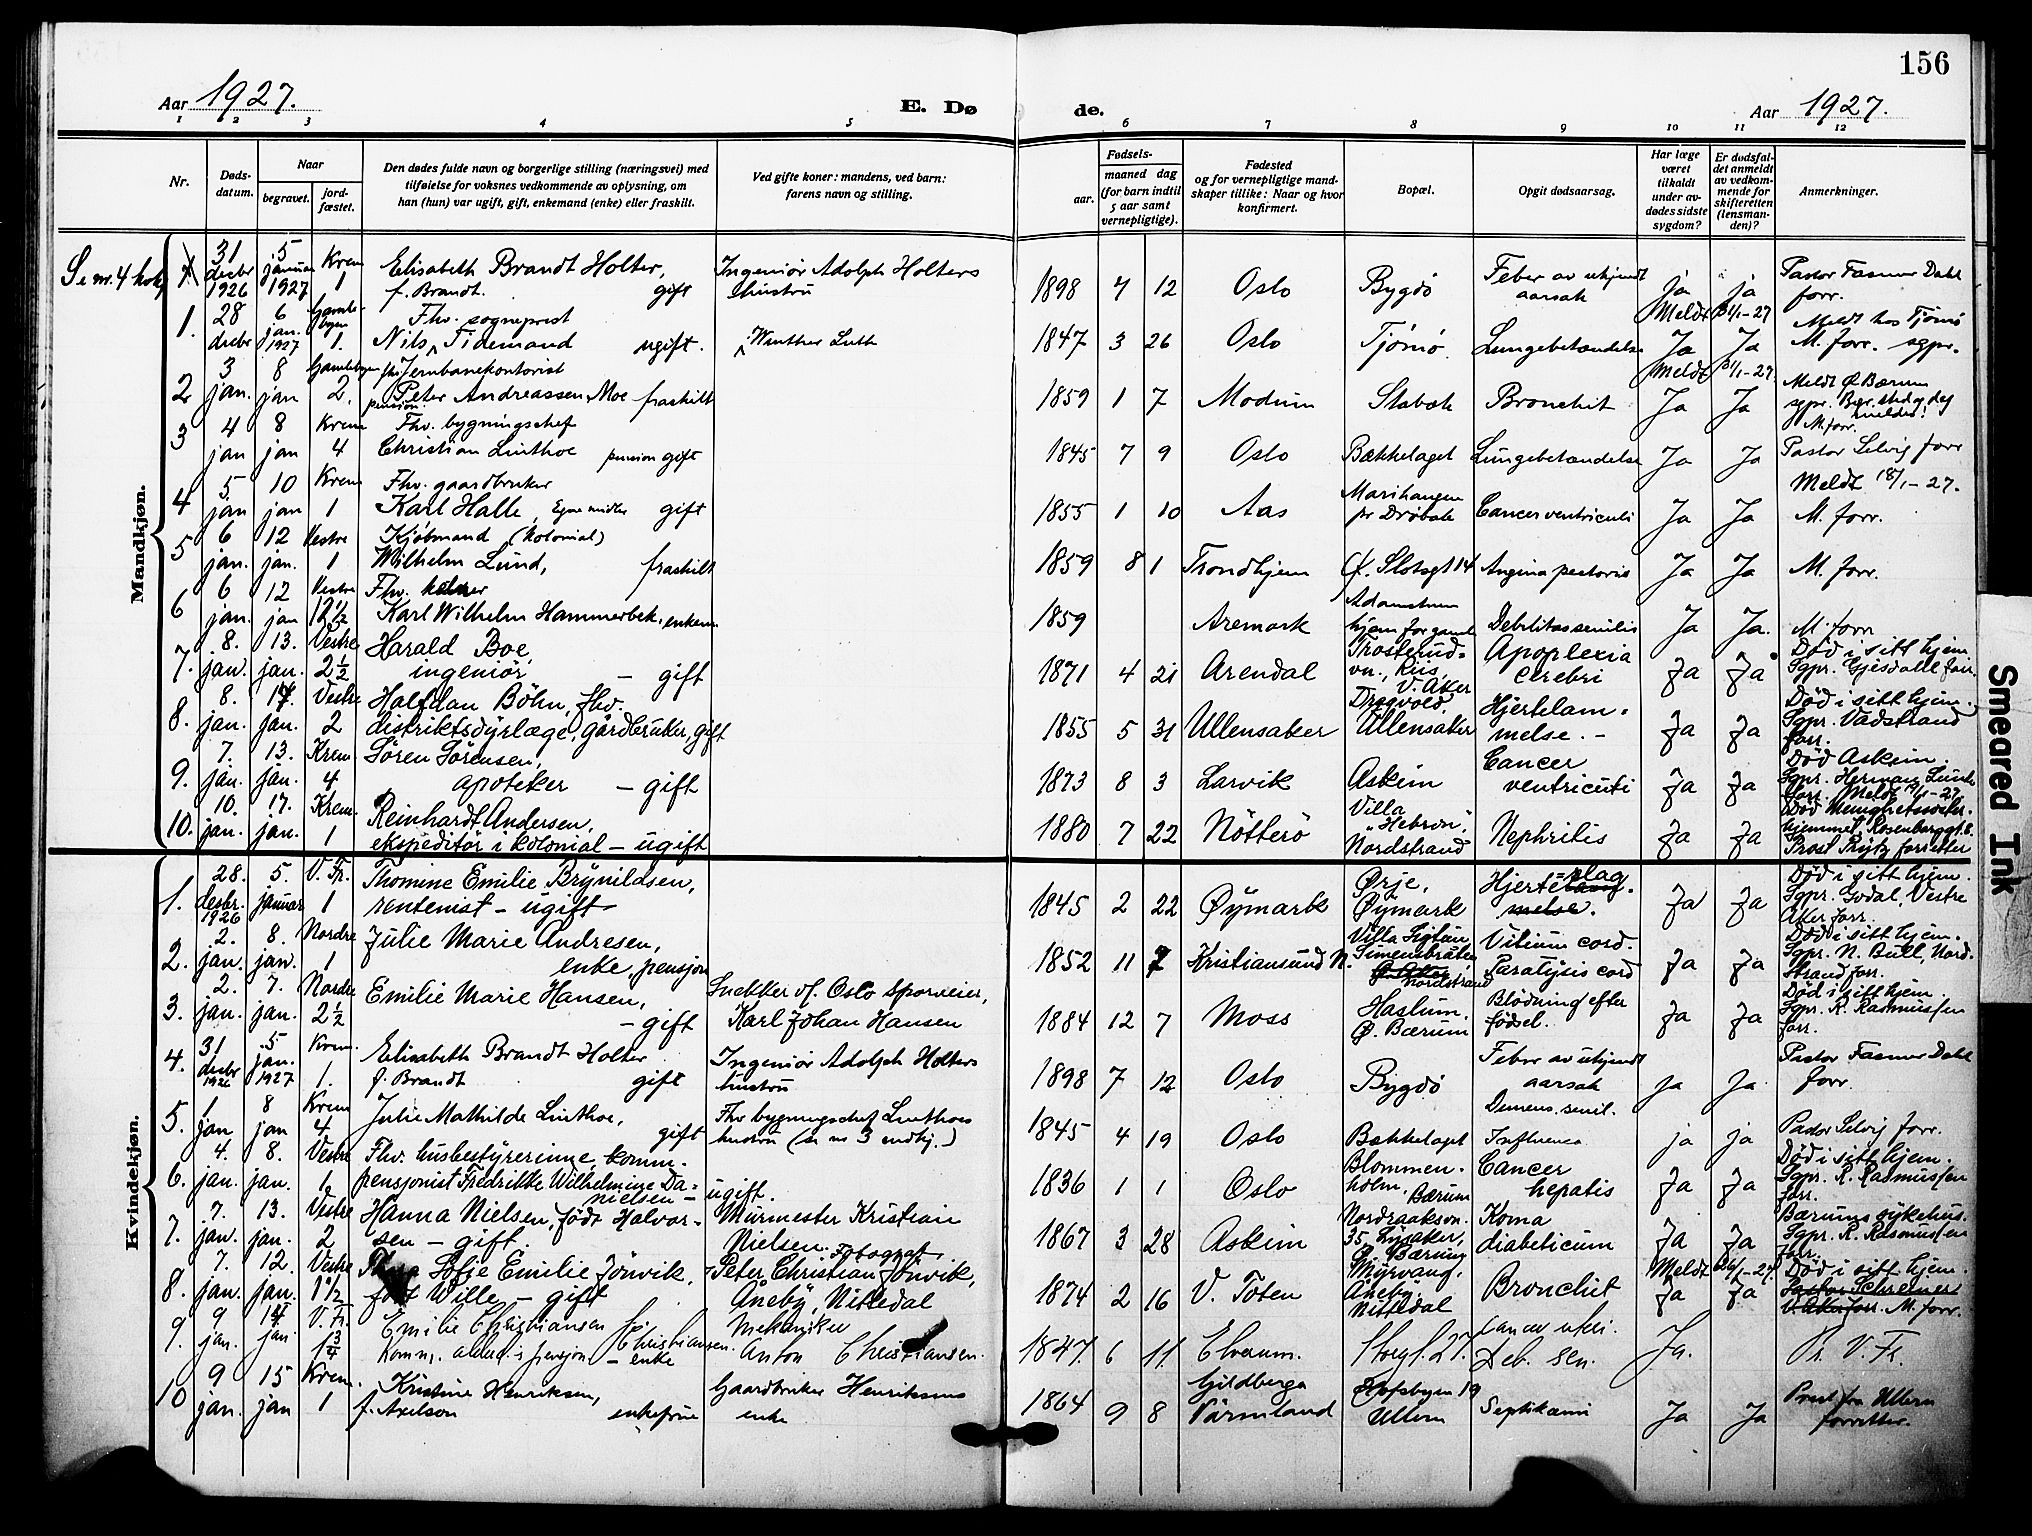 156
Aar 1927.
E. Dø
de.
Aar 1927.
1 2 3 4 5 6 7 8 9 10 11 12
Nr.
Døds-
datum.
Naar
begravet.
jord-
fæstet.
Den dødes fulde navn og borgerlige stilling (næringsvei) med
tilføielse for voksnes vedkommende av oplysning, om
han (hun) var ugift, gift, enkemand (enke) eller fraskilt.
Ved gifte koner: mandens, ved barn:
farens navn og stilling.
Fødsels-
aar.
maaned dag
(for barn indtil
5 aar samt
vernepligtige).
Fødested
og for vernepligtige mand-
skaper tillike: Naar og hvor
konfirmert.
Bopæl.
Opgit dødsaarsag.
Har læge
været
tilkaldt
under av-
dødes sidste
sygdom?
Er dødsfal-
det anmeldt
av vedkom-
mende for
skifteretten
(lensman-
den)?
Anmerkninger.
Mandkjøn.
Se nr. 4 kvkj
31 desbr 1926 5 januar 1927 Krem 1 Elisabeth Brandt Holter, f. Brandt. gift Ingeniør Adolph Holters hustru 1898 7 12 Oslo Bygdö Feber av ukjendt aarsak ja ja Pastor Fasmer Dahl forr.
1. 28 desbr 6 jan. 1927 Gamlebyen 1. Fhv. sogneprest Nils Tidemand ugift. Winther Luth 1847 3 26 Oslo Tjömö Lungebetændelse Ja Ja Meldt 31/1-27 Meldt hos Tjömö M. forr. sgpr.
2 3 jan. 8 jan Gamlebyen 2. fhv Jernbanekontorist Peter Andreassen Moe pension. fraskilt 1859 1 7 Modum Stabæk Bronchit Ja Ja Meldt 31/1-27. Meldt Ø. Bærum sgpr. M. forr.
3 4 jan 8 jan Krem 4 Fhv. bygningschef Christian Linthoe pension gift 1845 7 9 Oslo Bækkelaget Lungebetændelse Ja Ja Pastor Selvig forr
4 5 jan 10 jan Krem 1 Fhv. gaardbruker Karl Halle, Egne midler gift 1855 1 10 Aas Marihaugen pr Drøbak Cancer ventriculi Ja Ja Meldt 18/1-27. M. forr.
5 6 jan. 12 jan. Vestre 1 Kjöbmand (kolonial) Wilhelm Lund, fraskilt 1859 8 1 Trondhjem Ø. Slotsgt 14 Angina pectoris Ja Ja M. forr.
6 6 jan. 12 jan Vestre 12 1/2 Fhv. kelner Karl Wilhelm Hammerbek, enkem. 1859 Aremark hjem for gamle Debilitas senilis Ja Ja. M. forr
7. 8. jan. 13. jan. Vestre 2 1/2 Harald Boe, ingeniör – gift 1871 4 21 Arendal Trosterud-vn., Riis, V. Aker Apoplexia cerebri Ja Ja Död i sitt hjem. Sgpr. Gjesdahl forr.
8. 8. jan. 14. jan. Vestre 2 Halfdan Böhn, fhv. distriktsdyrlæge, gårdbruker, gift 1855 5 31 Ullensaker Dragvold, Ullensaker Hjertelammelse. – Ja Ja Död i sitt hjem. Sgpr. Vadstrand forr.
9. 7. jan. 13. jan. Krem. 4 Sören Sörensen, apoteker – gift 1873 8 3 Larvik Askim Cancer ventriculi Ja Ja Död Askim. Sgpr. Herman Lunde forr. Meldt 19/1-27.
10. 10. jan. 17. jan. Krem. 1 Reinhardt Andersen, ekspeditör i kolonial – ugift 1880 7 22 Nötterö Villa "Hebron", Nordstrand Nephritis Ja Ja Död Menighetssöster-hjemmet, Rosenborggt. 8. Prost Prytz forretter
Kvindekjøn.
1. 28. desbr. 1926 5. januar 1 V. Fr. Thomine Emilie Brynildsen, rentenist – ugift 1845 2 22 Øymark Ørje, Øymark Hjerteslag. Ja Ja Död i sitt hjem. Sgpr. Godal, Vestre Aker forr.
2. 2. jan. 8. jan. Nordre 1 Julie Marie Andresen, enke, pensjon 1852 11 7 Kristiansund N. Villa Sigtun, Simensbråten, Nordstrand Vitium cord. Paralysis cord Ja Ja Död i sitt hjem. Sgpr. N. Bull, Nordstrand forr.
3. 2. jan. 7. jan. Nordre 2 1/2 Emilie Marie Hansen, – gift Snekker v/ Oslo Sporveier, Karl Johan Hansen 1884 12 7 Moss Haslum, Ø. Bærum Blödning efter födsel. Ja Ja Död i sitt hjem. Sgpr. R. Rasmussen forr.
4. 31 desbr 1926 5 jan. 1927 Krem. 1. Elisabeth Brandt Holter f. Brandt gift Ingeniør Adolph Holters hustru 1898 7 12 Oslo Bygdö Feber av ukjendt aarsak ja Ja Pastor Fasmer Dahl forr.
5. 1 jan 8 jan Krem 4 Julie Mathilde Linthoe, gift Fhv bygningschef Linthoes hustru (se nr 3 mdkj.) 1845 4 19 Oslo Bækkelaget Demens. senil. Influenza ja ja Pastor Selvig forr.
6. 4. jan. 8. jan. Vestre 1 Fhv. husbestyrerinne, komm. pensjonist Fredrikke Wilhelmine Danielsen – ugift. 1836 1 1 Oslo Blommenholm, Bærum Cancer hepatis Ja Ja Död i sitt hjem. Sgpr. R. Rasmussen forr.
7. 7. jan. 13. jan. Vestre 2 Hanna Nielsen, født Halvorsen – gift. Murmester Kristian Nielsen. 1867 3 28 Askim Nordraaksvn. 35, Lysaker, Ø. Bærum Koma diabeticum Ja Ja Bærums sykehus. Sgpr. R. Rasmussen forr.
8. 7. jan. 12. jan. Vestre 1 1/2 Sofie Emilie Jönvik, født Wille – gift Fotograf Peter Christian Jönvik, Åneby, Nittedal 1874 2 16 V. Toten Myrvang, Åneby, Nittedal Bronchit Meldt Ja Ja Död i sitt hjem. Pastor Schreiner V. Aker forr. M. forr.
9. 9 jan. 14 jan V. Fr. 1 3/4 Emilie Christiansen f. Christiansen. enke Mekaniker Anton Christiansen. 1847. 6 11. Elverum. Storgt. 27. Cancer uteri. Deb. sen. Ja. Pr. V. Fr.
10 9 jan. 15 jan Krem. 1 Kristine Henriksen, f. Axelson enkefrue Gaardbruker Henriksens enke 1864 9 8 Gildberga Värmland Ullern Septikæmi Ja Ja Prest fra Ullern forretter.
Smeared Ink